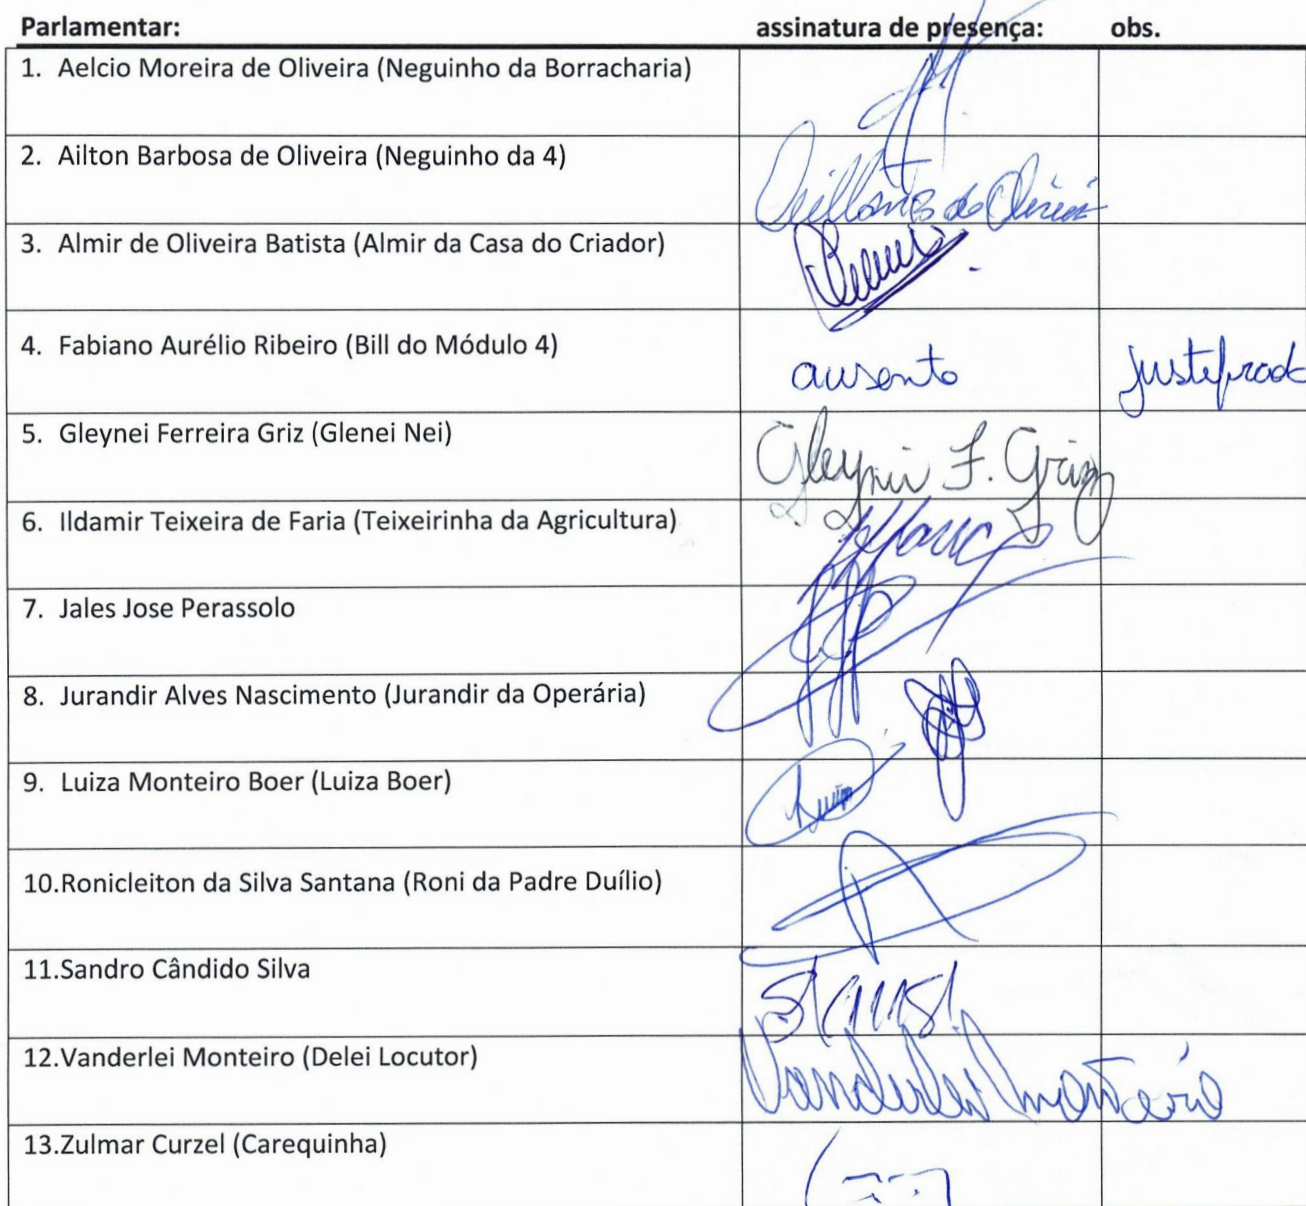 Parlamentar: assinatura de presença: obs.
1. Aelcio Moreira de Oliveira (Neguinho da Borracharia)
2. Ailton Barbosa de Oliveira (Neguinho da 4)
3. Almir de Oliveira Batista (Almir da Casa do Criador)
4. Fabiano Aurélio Ribeiro (Bill do Módulo 4) ausente
5. Gleynei Ferreira Griz (Glenei Nei) Gleynei F. Griz
6. Ildamir Teixeira de Faria (Teixeirinha da Agricultura)
7. Jales Jose Perassolo
8. Jurandir Alves Nascimento (Jurandir da Operária)
9. Luiza Monteiro Boer (Luiza Boer)
10.Ronicleiton da Silva Santana (Roni da Padre Duílio)
11.Sandro Cândido Silva
12.Vanderlei Monteiro (Delei Locutor) Vanderlei Monteiro
13.Zulmar Curzel (Carequinha)